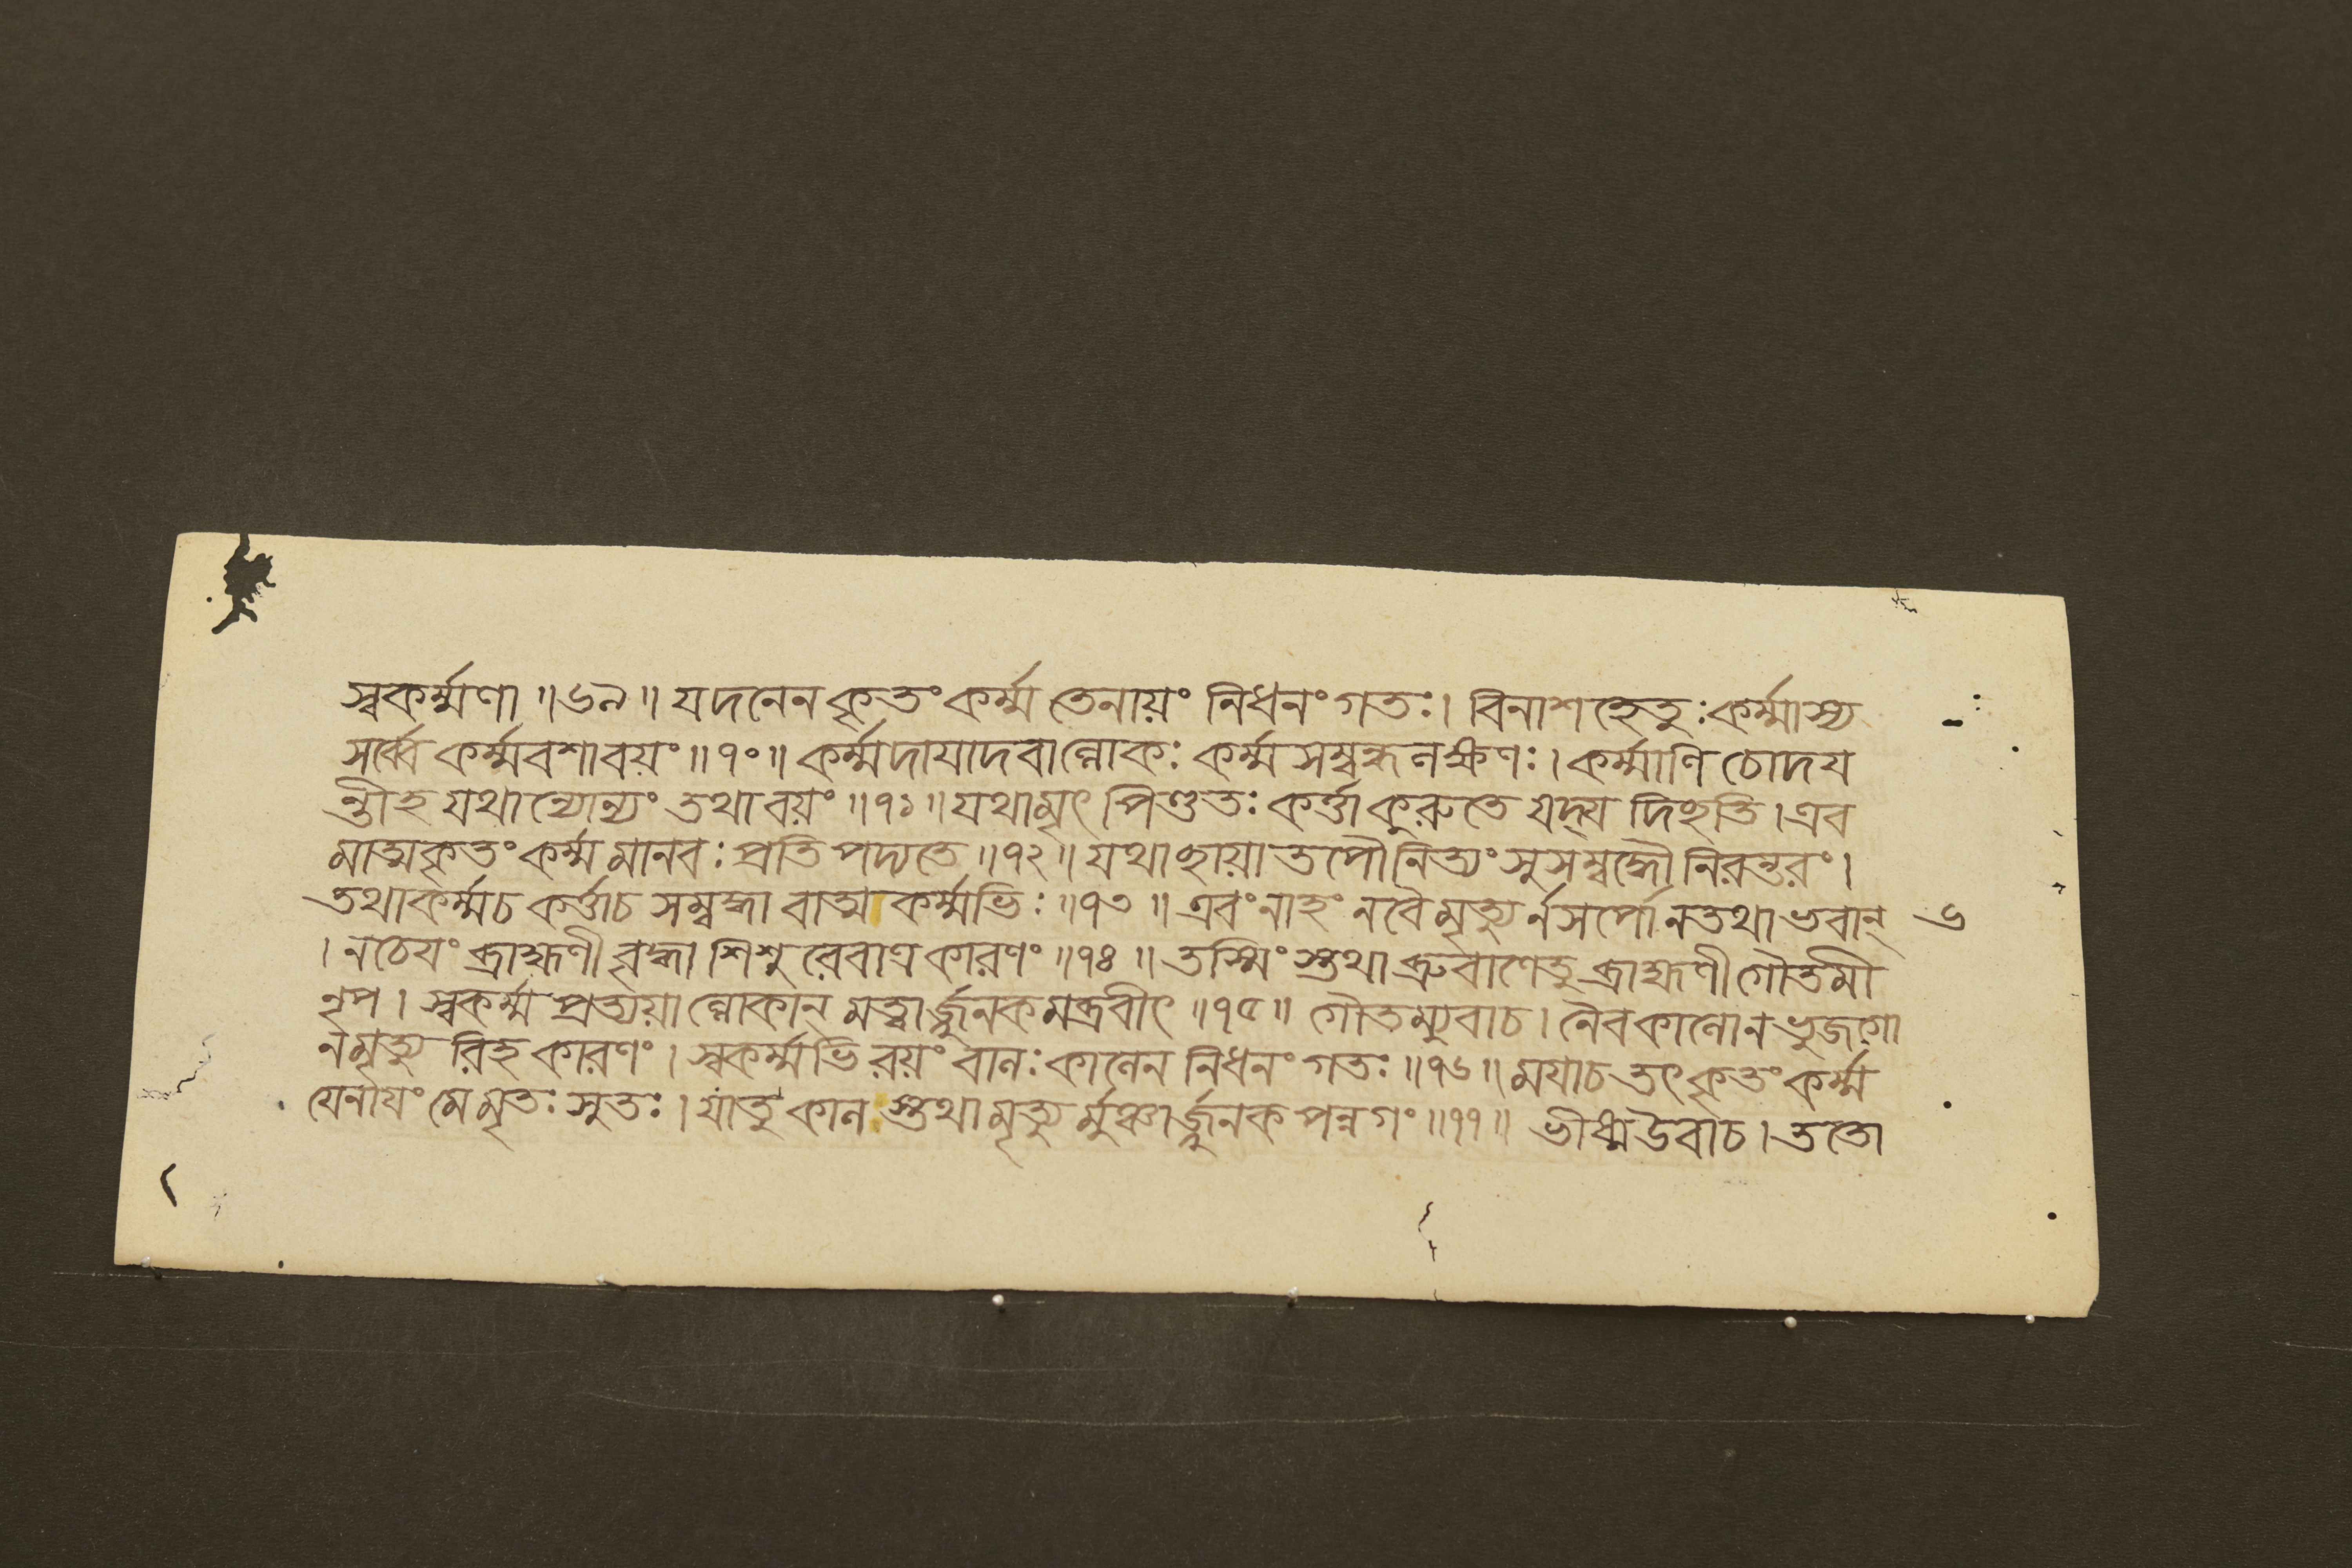 স্বকর্ম্মণা ॥৬৯॥ যদনেন কৃতং কর্ম্ম তেনায়ং নিধনং গতঃ। বিনাশহেতুঃ কর্ম্মাস্য
সর্ব্বে কর্ম্মবশাবয়ং ॥৭০॥ কর্ম্মদায়াদবাল্লোকঃ কর্ম্মসম্বন্ধলক্ষণঃ। কর্ম্মাণি চোদয
ন্তীহ যথান্যোন্যং তথা বয়ং ॥৭১॥ যথা মৃৎপিণ্ডতঃ কর্ত্তা কুরুতে যদ্যদিচ্ছতি। এব
মাত্মকৃতং কর্ম্ম মানবঃ প্রতিপদ্যতে ॥৭২॥ যথা ছায়াতপৌ নিত্যং সুসম্বদ্ধৌ নিরন্তরং।
তথা কর্ম্ম চ কর্ত্তা চ সম্বদ্ধা বাত্মকর্ম্মভিঃ ॥৭৩॥ এবং নাহং ন বৈ মৃত্যুর্ন সর্পো ন তথা ভবান্ ৬
। ন চেয়ং ব্রাহ্মণী বৃদ্ধা শিশুরেবাত্র কারণং ॥৭৪॥ তস্মিংস্তথা ব্রুবাণে তু ব্রাহ্মণী গৌতমী
নৃপ। স্বকর্ম্মপ্রত্যয়াল্লোকান্ মত্বার্জ্জুনকমব্রবীৎ ॥৭৫॥ গৌতম্যুবাচ। নৈব কালো ন ভুজগো
ন মৃত্যুরিহ কারণং। স্বকর্ম্মভিরয়ং বালঃ কালেন নিধনং গতঃ ॥৭৬॥ ময়া চ তৎ কৃতং কর্ম্ম
যেনায়ং মে মৃতঃ সুতঃ। যাতু কালস্তথা মৃত্যুর্মুঞ্চার্জ্জুনক পন্নগং ॥৭৭॥ ভীষ্ম উবাচ। ততো